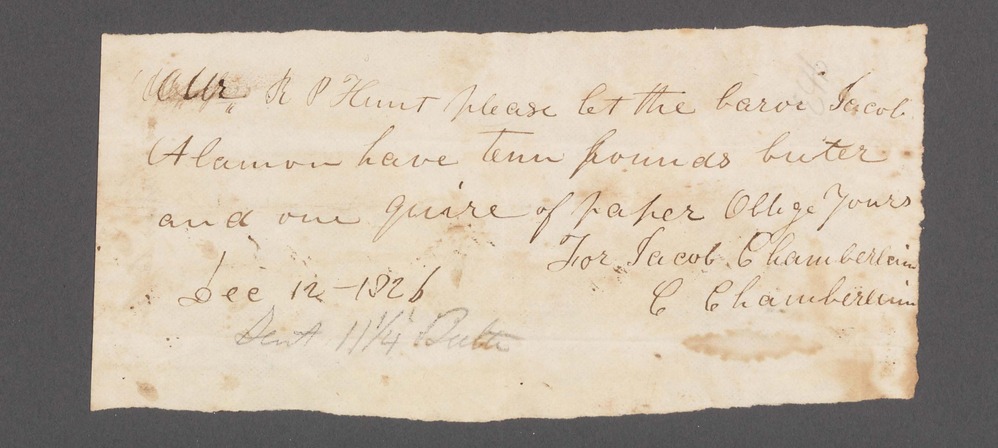 Mr R P Hunt please let the baror Jacob
Alamon have tenn pounds buter
and one quire of paper Oblige Yours
For Jacob Chamberlain
Dec 12 - 1826
C Chamberlain
Sent 11 1/4 Butter